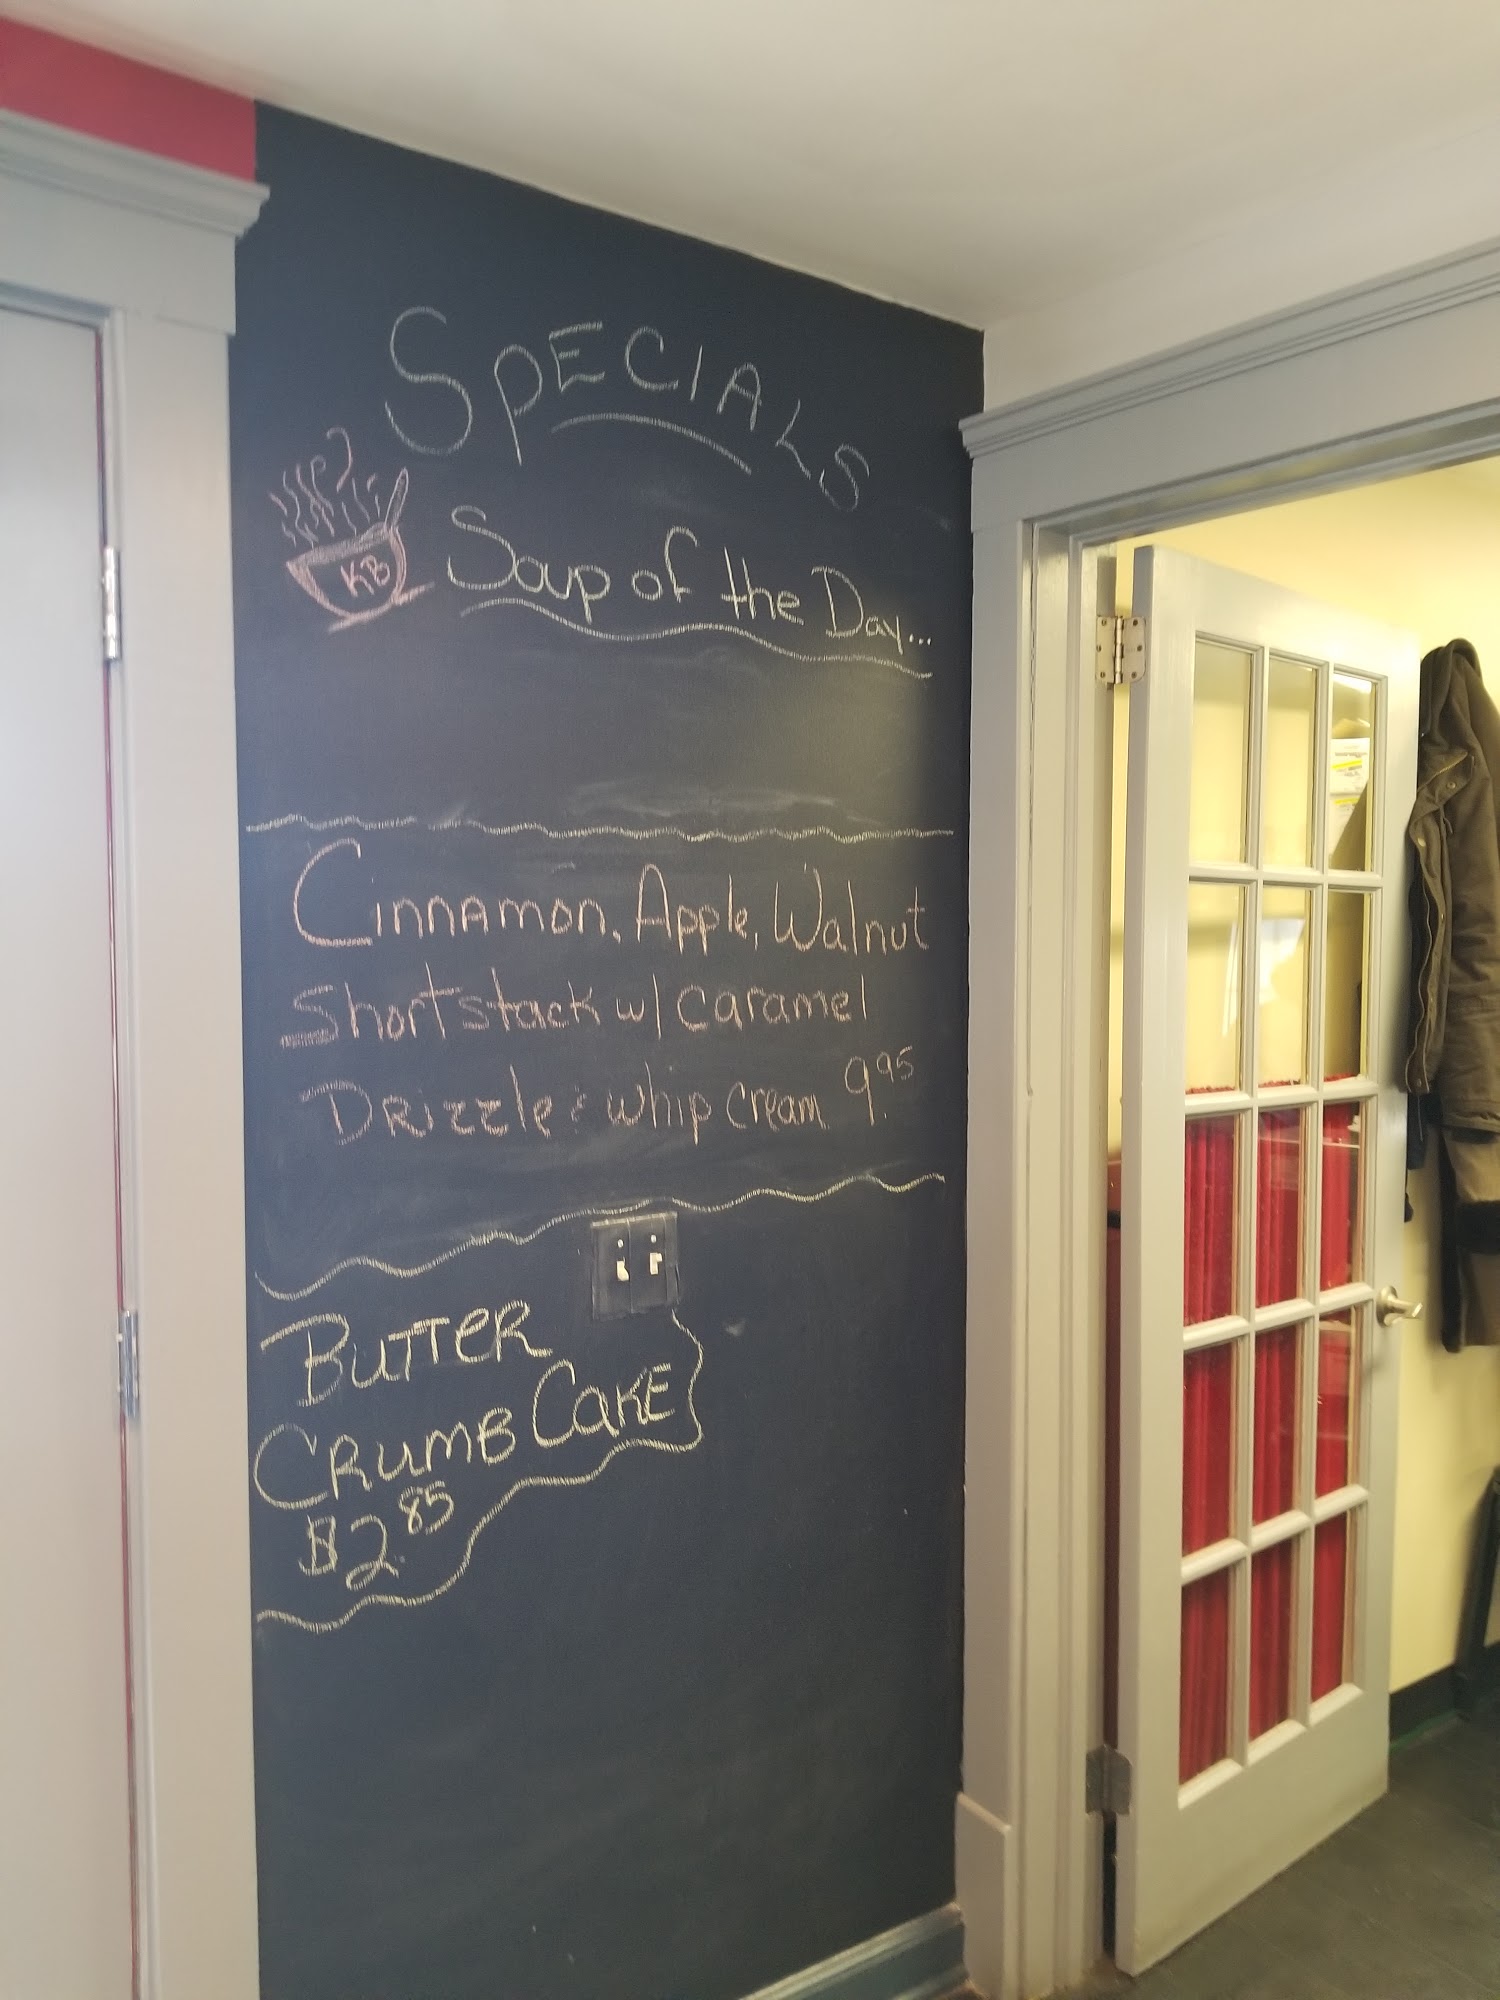 SPECIALS
KB
Soup of the Day...
Cinnamon, Apple, Walnut
Short stack w/ caramel
Drizzle & whip cream 9.95
BUTTER
CRUMB CAKE
$2.85